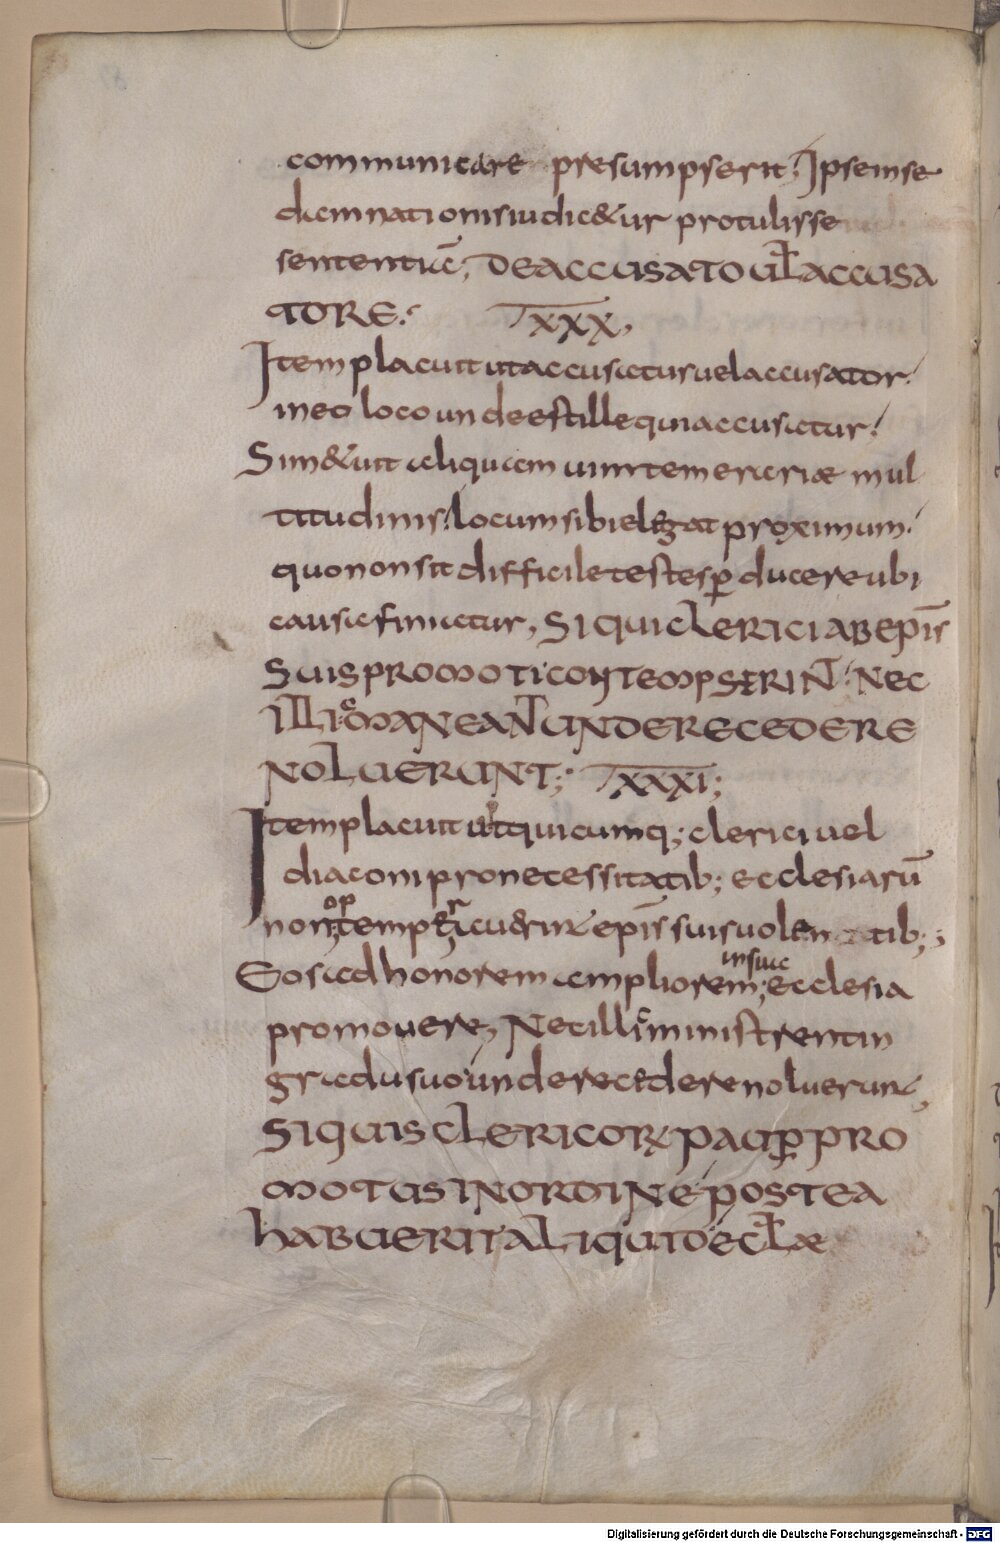 communicare presumpserit; Ipse in se
damnationis iudic&ur protulisse
sententiā; DE ACCUSATO UŁ ACCUSA
TORE: XXX,
Item placuit ut accusatus uel accusator
in eo loco unde est ille qui accusatur;
Si m&uit aliquam uim temerariae mul
titudinis; locum sibi elegat proximum.
quo non sit difficile testes ꝑducere ubi
causa finiatur, SI QUI CLERICI AB EPIS
SUIS PROMOTI CONTEMPSERINT. NEC
ILLI OMANEANT UNDE RECEDERE
NOLUERUNT; XXXI;
Item placuit ut quicumq; clerici uel
diaconi pro necessitatib; ecclesiarū
non
op
r
epīs suis uolentib;;
Eos ad honorem ampliorem; ecclesia
in sua
promouere, Nec illi ministrent in
gradu suo unde recedere noluerunt,
SI QUIS CLERICORꝜ PAUꝑ PRO
MOTUS IN ORDINE POSTEA
HABUERIT ALIQUID ECŁAE
Digitalisierung gefördert durch die Deutsche Forschungsgemeinschaft - DFG